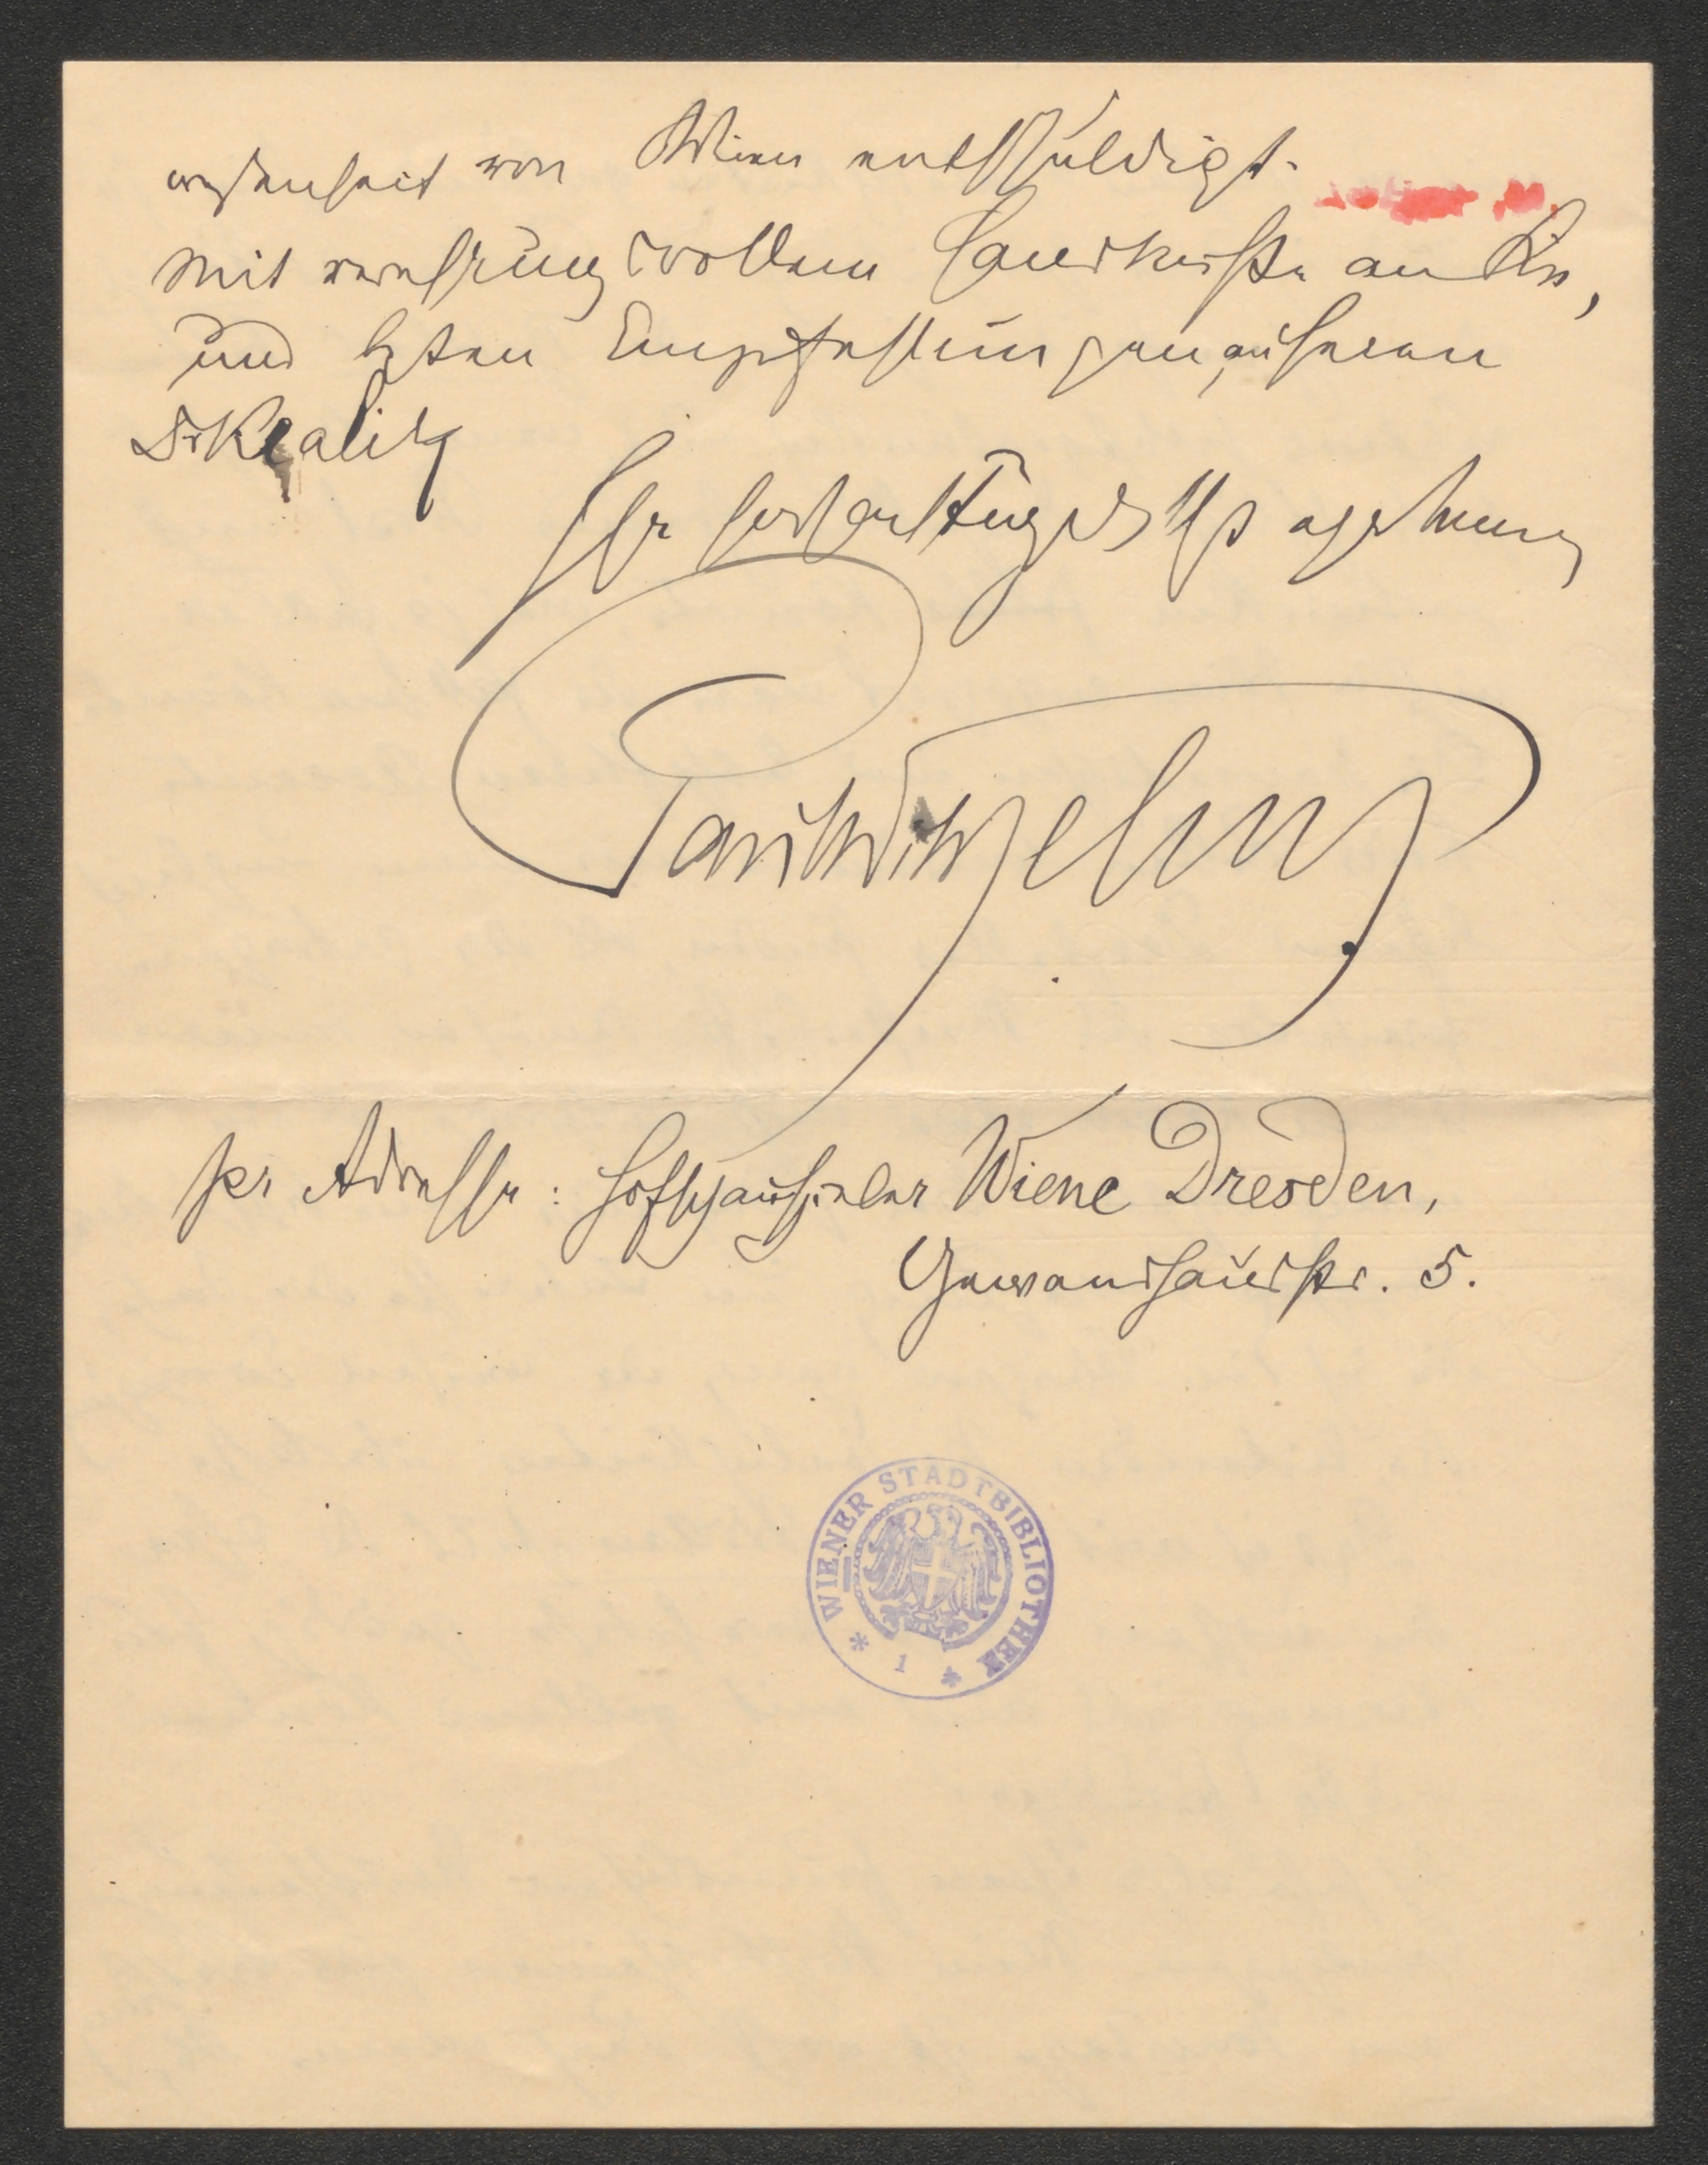 wesenheit von Wien entschuldigt.
Mit verehrungsvollem Handkusse an Sie,
und bsten Empfehlungen an Herrn
Dr Kralik
Ihr hochachtungsvollst ergebener
Paul Wilhelm
per Adresse: Hofschauspieler Wiene Dresden,
Gewandhausstr. 5.
WIENER STADTBIBLIOTHEK
* 1 *